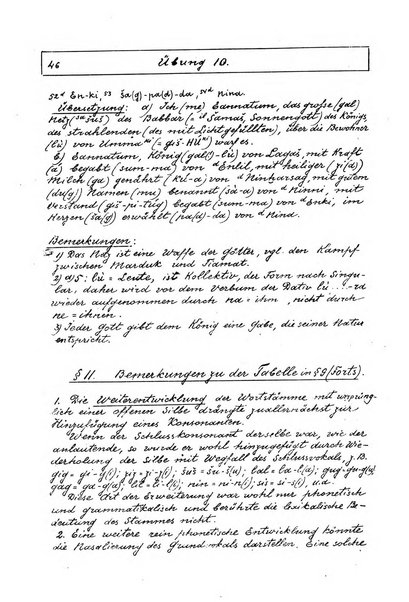 46 Übung 10.
52 d En-ki, 53 ša(g)-pa(d)-da, 54 d Nina.
Übersetzung: a) Ich (me) Eannatum, das große (gal)
Netz (sa šuš) des Babbar (= il Šamaš, Sonnengott) des Königs,
des strahlenden (des mit Licht gefüllten), über die Bewohner
(lù) von Umma (= giš-HÚ ki) warf es.
b) Eannatum, König (gal(l)-lù) von Lagaš, mit Kraft
(á) begabt (sum-ma) von d Enlil, mit heiliger
Milch (ga) genährt von d Ninharsag, mit gutem
Namen (mu) benannt (šà-a) von d Ninni, mit
Verstand begabt (sum-ma) von d Enki, im
Herzen (ša(g)) erwählt (pa(d)-da) von d Nina.
Bemerkungen:
1) Das Netz ist eine Waffe der Götter, vgl. den Kampf
zwischen Marduk und Tiamat.
2) a) 5: lù = Leute, ist Kollektiv, der Form nach Singu-
lar, daher wird vor dem Verbum der Dativ lù...-ra
wieder aufgenommen durch na = ihm, nicht durch
ne = ihnen.
3) Jeder Gott gibt dem König eine Gabe, die seiner Natur
entspricht.
§ 11. Bemerkungen zu der Tabelle in § 9 (Forts).
1. Die Weiterentwicklung der Wortstämme mit ursprüng-
lich einer offenen Silbe drängte zuallernächst zur
Hinzufügung eines Konsonanten.
Wenn der Schlusskonsonant derselbe war, wie der
anlautende, so wurde er wohl hinzugefügt durch Wie-
derholung der Silbe mit Wegfall des Schlussvokals, z.B.
gig = gi-g(i); ziz = zi-z(i); šuš = šu-š(u); lal = la-l(a); gug = gu-g(u);
gag = ga-g(a); nin = ni-n(i); sis = si-s(i), u.a.
Diese Art der Erweiterung war wohl nur phonetisch
und grammatikalisch und berührte die lexikalische Be-
deutung des Stammes nicht.
2. Eine weitere rein phonetische Entwicklung könnte
die Nasalierung des Grundvokals darstellen. Eine solche